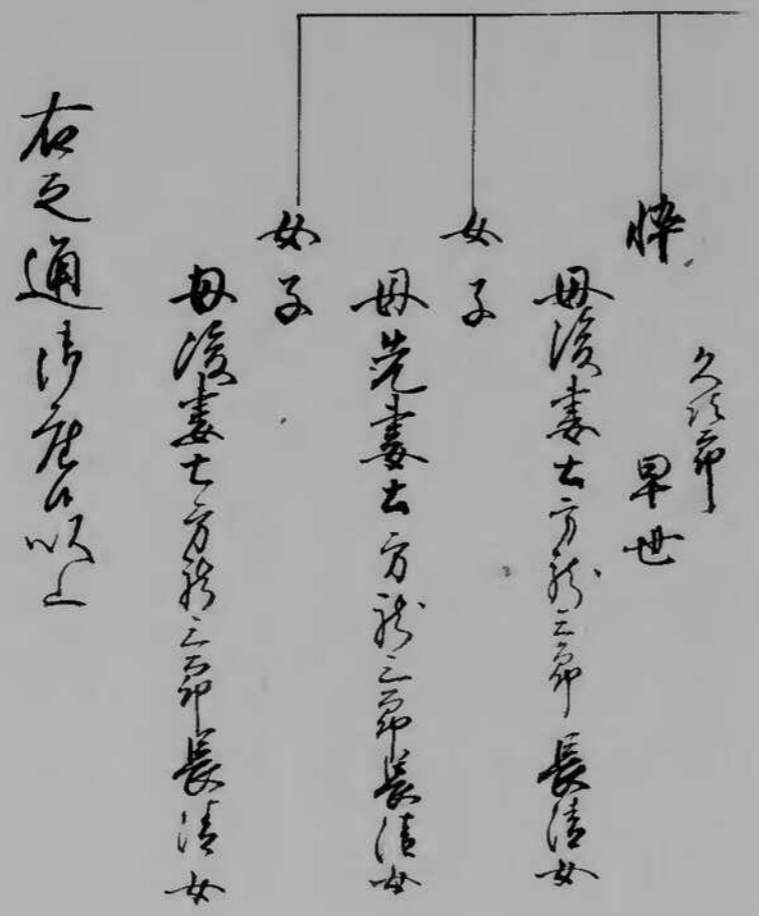 久次郎
忰
早世
母後妻土方新三郎長清女
女子
母先妻土方新三郎長清女
女子
母後妻土方新三郎長清女
右之通御座候以上